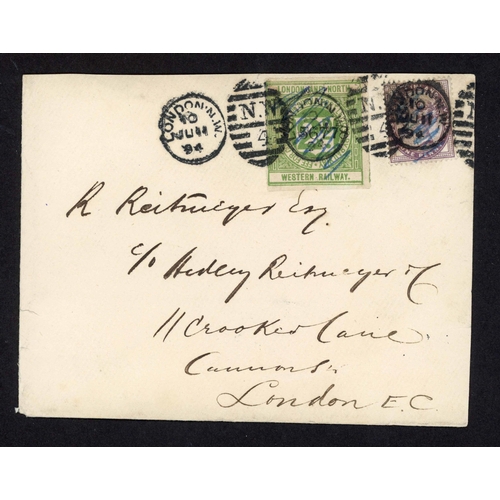 LONDON·N.W. 10 JU 11 94
N.W. 4
LONDON AND NORTH
WESTERN RAILWAY.
R Reitmeyer Esq.
c/o Hedley Reitmeyer & C
11 Crooked Lane
Cannon St
London E.C.